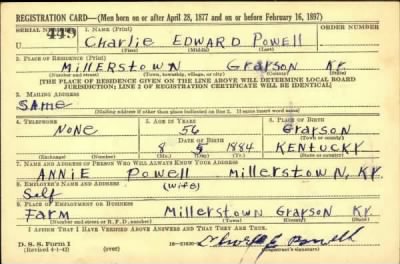 REGISTRATION CARD—(Men born on or after April 28, 1877 and on or before February 16, 1897)
SERIAL NUMBER 1. NAME (Print) ORDER NUMBER
U 449 Charlie EDWARD Powell
(First) (Middle) (Last)
2. PLACE OF RESIDENCE (Print)
Millerstown Grayson Ky.
(Number and street) (Town, township, village, or city) (County) (State)
[THE PLACE OF RESIDENCE GIVEN ON THE LINE ABOVE WILL DETERMINE LOCAL BOARD
JURISDICTION; LINE 2 OF REGISTRATION CERTIFICATE WILL BE IDENTICAL]
3. MAILING ADDRESS
SAme
[Mailing address if other than place indicated on line 2. If same insert word same]
4. TELEPHONE 5. AGE IN YEARS 6. PLACE OF BIRTH
None 56 Grayson
DATE OF BIRTH (Town or county)
8 1884 KENTUCKY
(Exchange) (Number) (Mo.) (Day) (Yr.) (State or country)
7. NAME AND ADDRESS OF PERSON WHO WILL ALWAYS KNOW YOUR ADDRESS
ANNIE Powell Millerstown, Ky.
8. EMPLOYER'S NAME AND ADDRESS (wife)
Self
9. PLACE OF EMPLOYMENT OR BUSINESS
Farm Millerstown Grayson Ky.
(Number and street or R. F. D. number) (Town) (County) (State)
I AFFIRM THAT I HAVE VERIFIED ABOVE ANSWERS AND THAT THEY ARE TRUE.
D. S. S. Form 1
(Revised 4-1-42) (over) Charlie E Powell
(Registrant's signature)